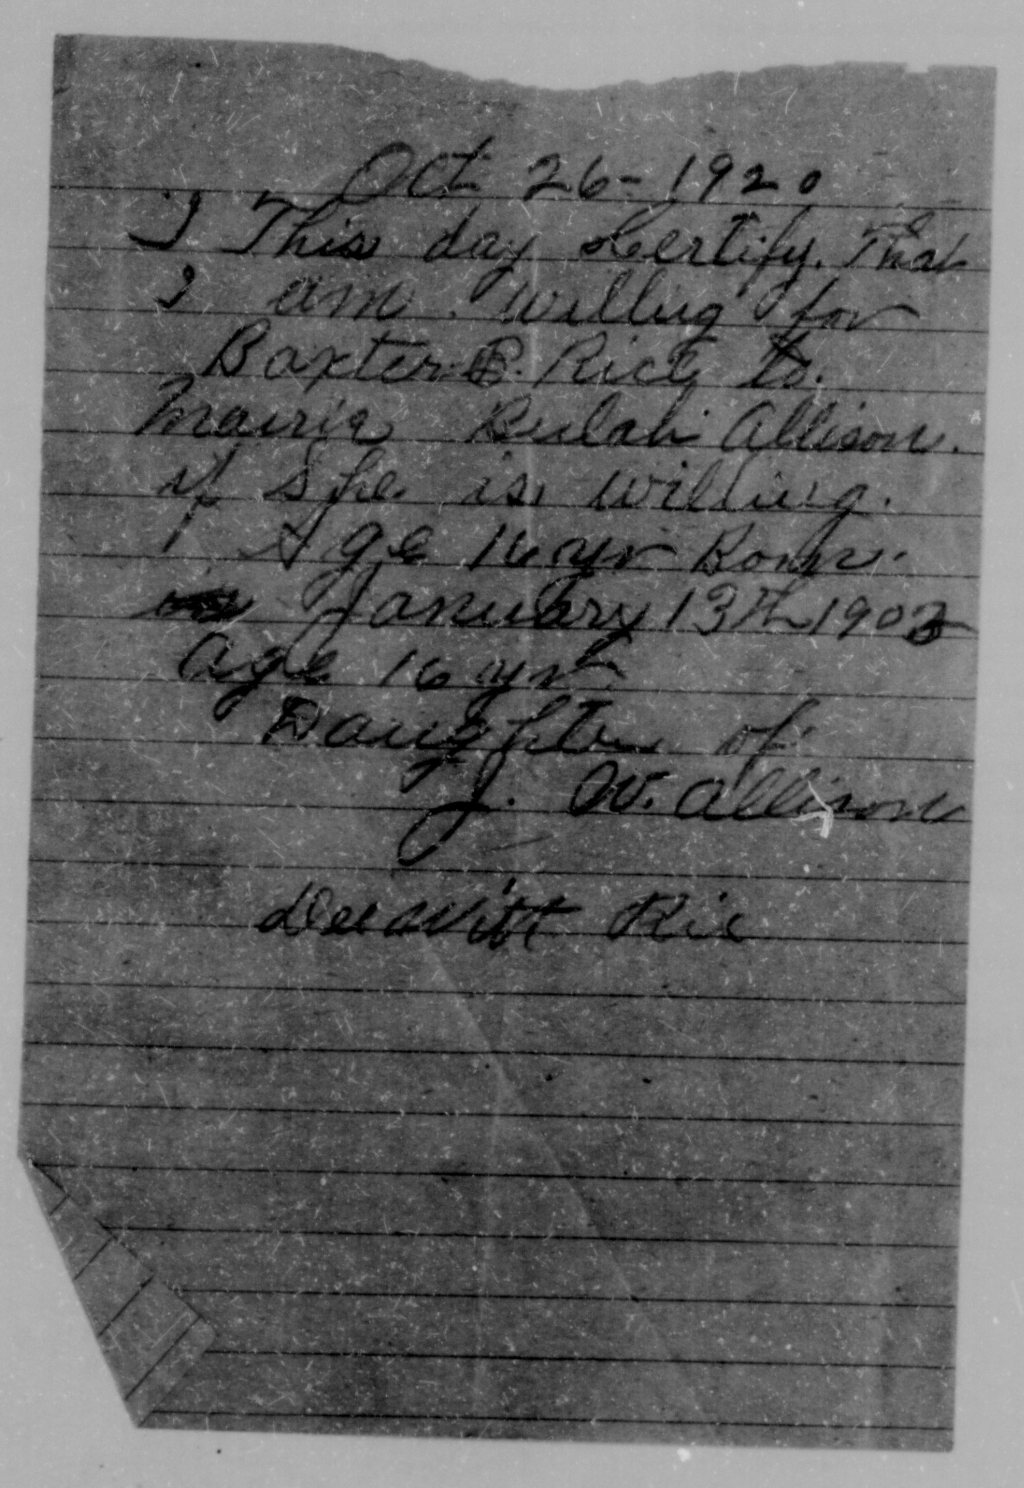 Oct 26-1920
I This day Certify. That
I am. willing for
Baxter B. Rice to.
Mairie Bulah Allison.
if She is willing.
Age 16 yr Born.
January 13th 1903
age 16 yr
Daughter of
J. W. Allison
Deewitt Rice